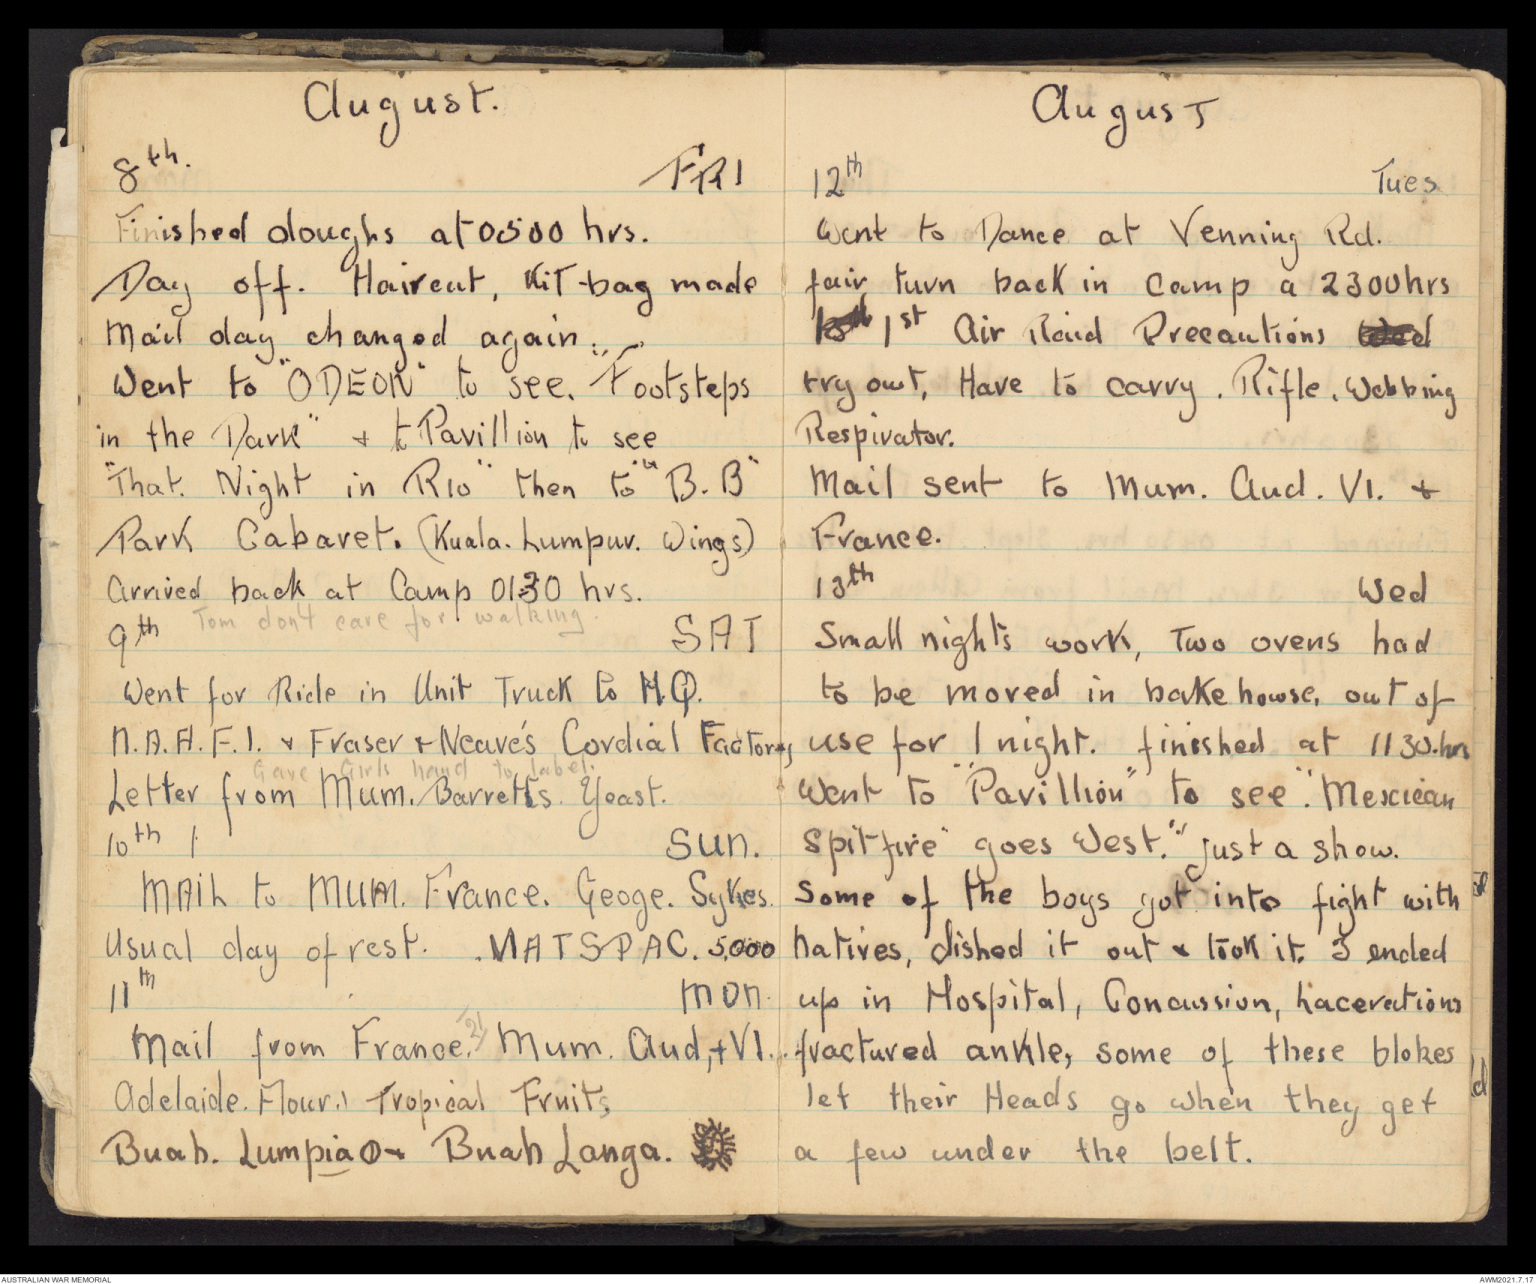 August.
8th. FRI
Finished doughs at 0500 hrs.
Day off. Haircut, Kit-bag made
Mail day changed again.
Went to "ODEON" to see. "Footsteps
in the Dark" & t Pavillion to see
"That. Night in Rio" then to "B.B"
Park Cabaret. (Kuala. Lumpur. Wings)
Arrived back at Camp 0130 hrs.
Tom don't care for walking.
9th SAT
Went for Ride in Unit Truck to H.Q.
N.A.A.F.I. & Fraser & Neave's Cordial Factory
Gave Girls hand to label.
Letter from Mum. Barretts. Yeast.
10th SUN.
MAIL to MUM. France. Geoge. Sykes.
Usual day of rest. . MATSPAC. 5,000
11th MON.
Mail from France. 21 Mum. Aud, + VI.
Adelaide. Flour. Tropical Fruits
Buah. Lumpia & Buah Langa.
August
12th Tues
Went to Dance at Venning Rd.
fair turn back in camp a 2300hrs
1st Air Raid Precautions
try out, Have to carry. Rifle. Webbing
Respirator.
Mail sent to Mum. Aud. VI. &
France.
13th Wed
Small nights work, Two ovens had
to be moved in bakehouse, out of
use for 1 night. finished at 1130.hrs
Went to "Pavillion" to see "Mexican
Spitfire" goes West." just a show.
Some of the boys got into fight with
natives, dished it out & took it. 3 ended
up in Hospital, Concussion, Lacerations
fractured ankle, some of these blokes
let their Heads go when they get
a few under the belt.
AUSTRALIAN WAR MEMORIAL
AWM2021.7.17